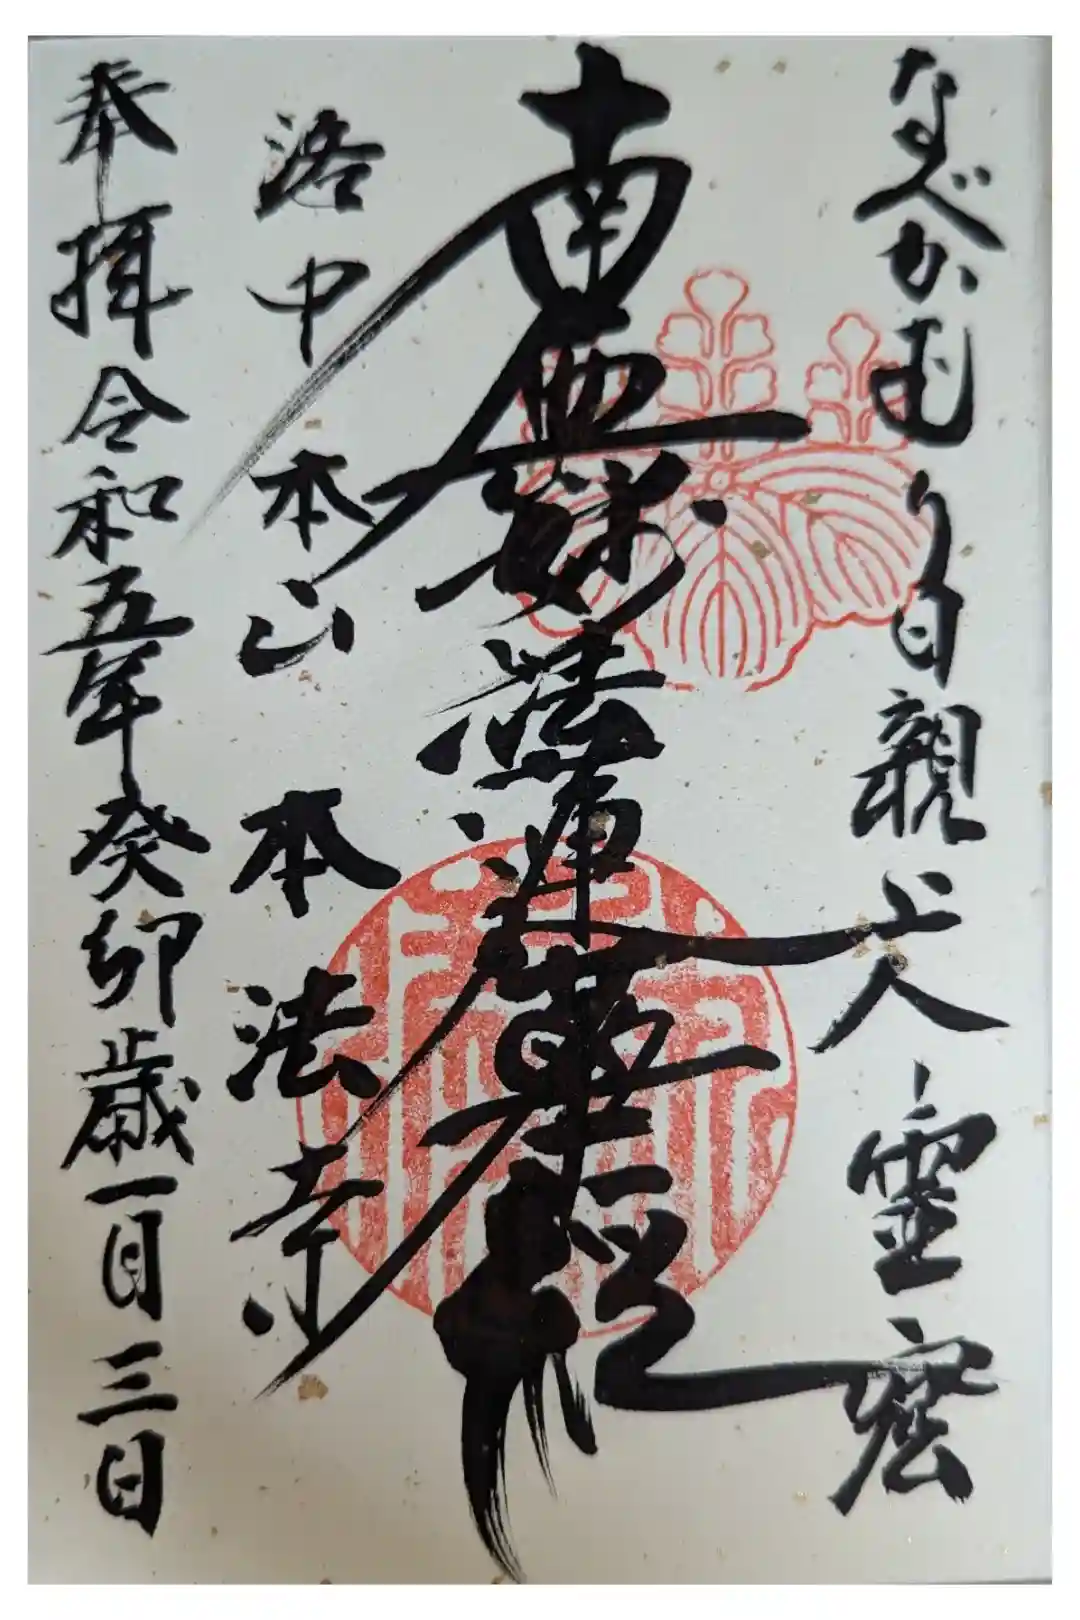 なべかむり日親大霊
南無妙法蓮華経
洛中 本山 本法寺
奉拝 令和五年癸卯歳一月三日